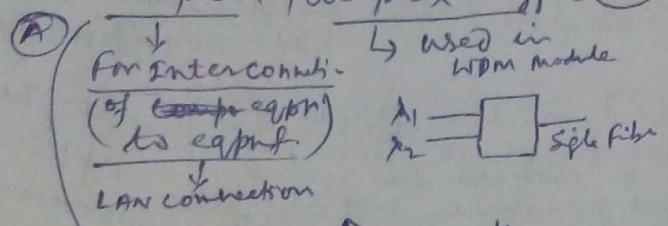 A
For Interconnecti-
(of eqpn)
to eqpmt.
LAN connection
used in
WDM module
λ1
λ2
Sgle Fibr